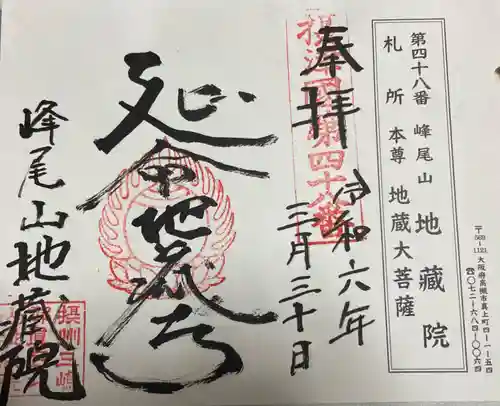 第四十八番 峰尾山 地蔵院
札所本尊 地蔵大菩薩
〒569-1121 大阪府高槻市真上町四-一-五四
☎〇七二-六八四-〇〇六四
奉拝
摂津国第四十八番
令和六年
三月三十日
延命地蔵尊
峰尾山地蔵院